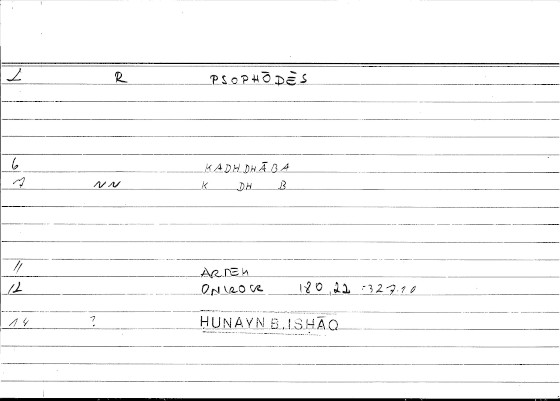 1 R PSOPHŌDĒS
6 KADHDHĀBA
7 NN K DH B
11 ARTEM
12 ONIROCR 180,22 :327.10
14 ? HUNAYN B. ISHĀQ